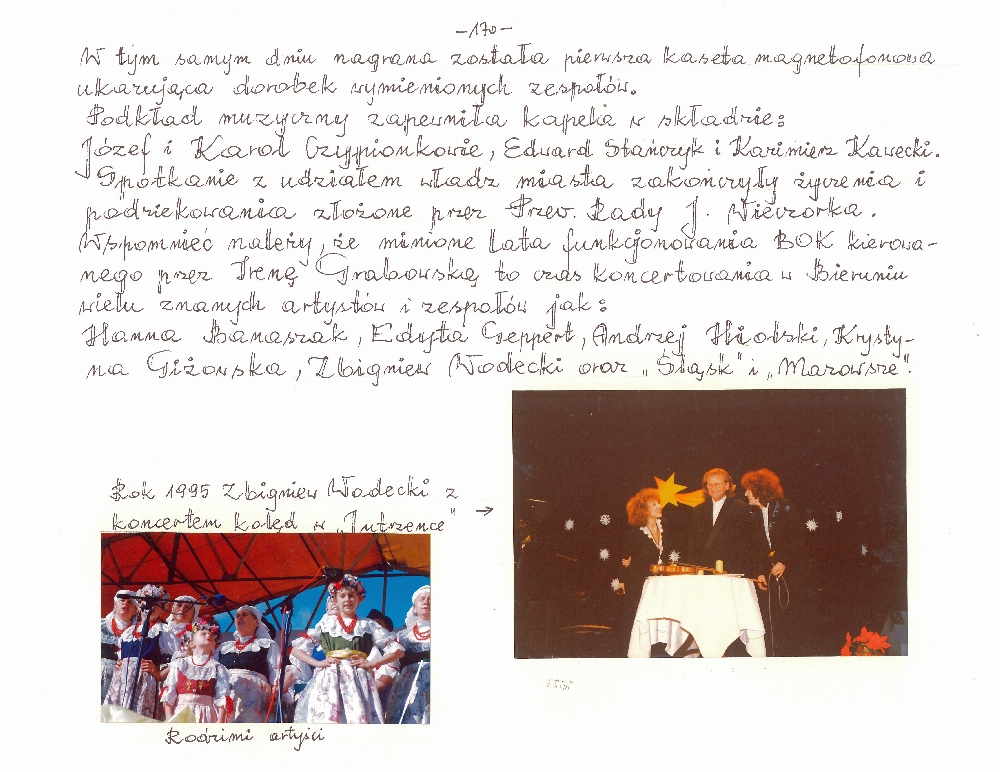 -170-
W tym samym dniu nagrana została pierwsza kaseta magnetofonowa
ukazująca dorobek wymienionych zespołów.
Podkład muzyczny zapewniła kapela w składzie:
Józef i Karol Czypionkowie, Edward Stańczyk i Kazimierz Kawecki.
Spotkanie z udziałem władz miasta zakończyły życzenia i
podziekowania złożone przez Przew. Rady J. Wieczorka.
Wspomnieć należy, że minione lata funkcjonowania BOK kierowa-
nego przez Irenę Grabowską to czas koncertowania w Bieruniu
wielu znanych artystów i zespołów jak:
Hanna Banaszak, Edyta Geppert, Andrzej Hiolski, Krysty-
na Giżowska, Zbigniew Wodecki oraz „Śląsk" i „Mazowsze".
Rok 1995 Zbigniew Wodecki z
koncertem kolęd w „Jutrzence" →
Rodzimi artyści